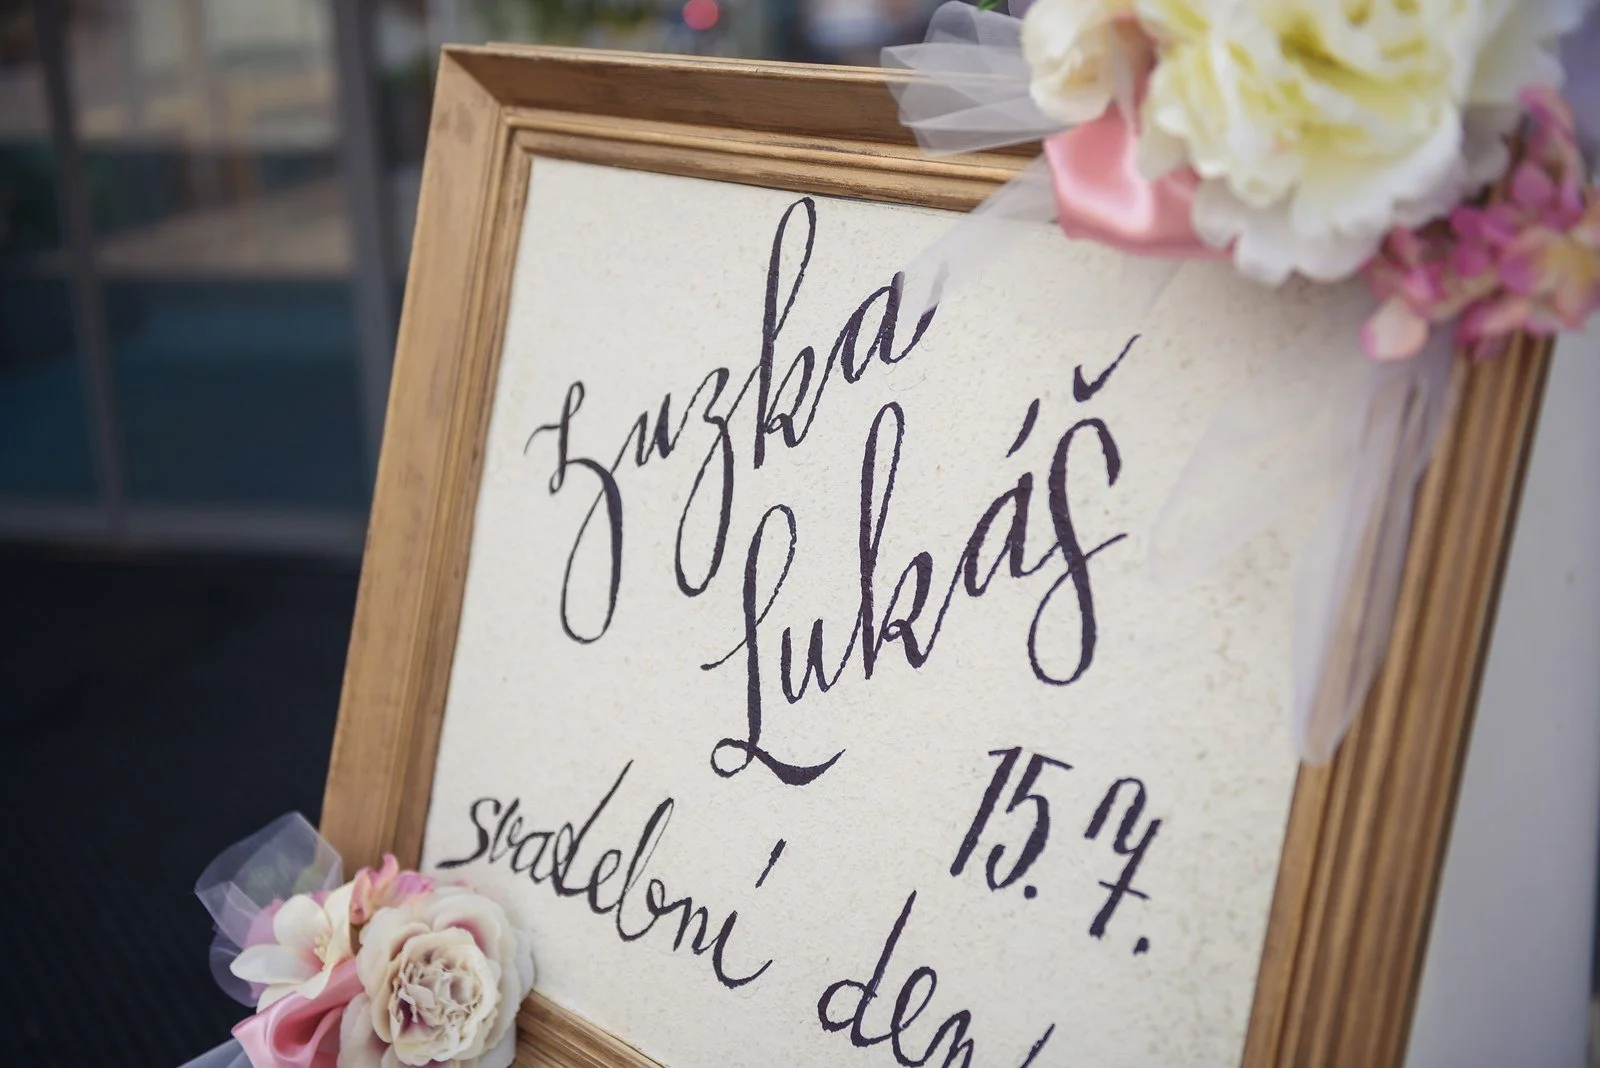 Zuzka
Lukáš
15. 7.
svatební
den